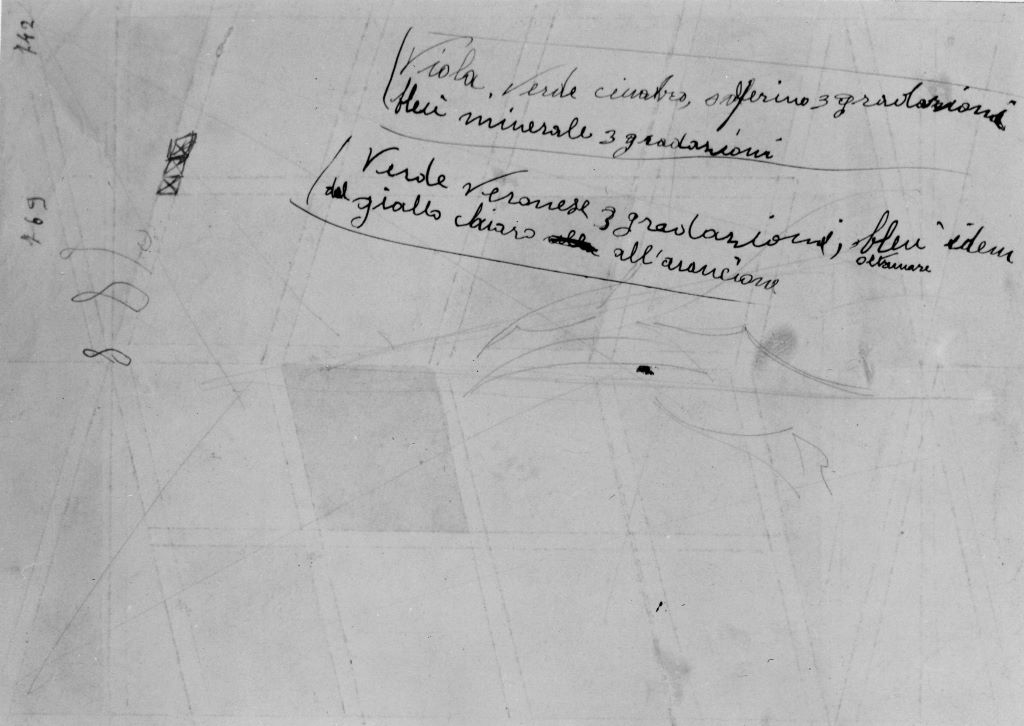 Viola, verde cinabro, solferino 3 gradazioni
bleu minerale 3 gradazioni
Verde Veronese 3 gradazioni, bleu idem
oltramare
dal giallo chiaro all'arancione
742
769